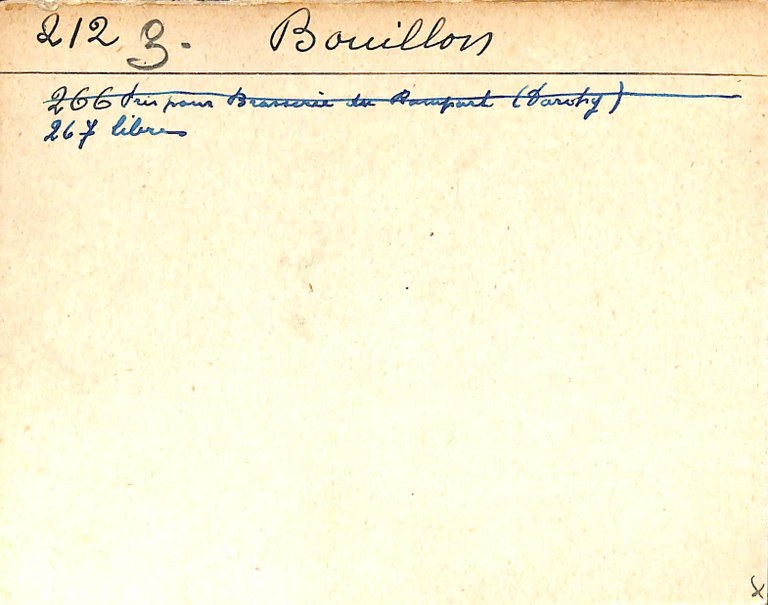 212 3. Bouillon
266 Pris pour Brasserie du Rempart
267 libres